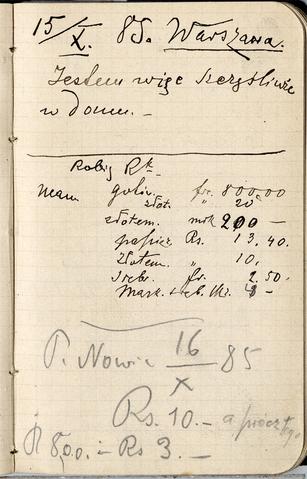 15/X. 85. Warszawa.
Jestem więc szczęśliwie
w domu. —
Robię Rk
Mam gotów. fr. 800,00
złot. " 20
złotem. mrk 200 —
papier. Rs. 13,40.
złotem " 10,
srebr. fr. 2.50.
Mark. sreb. Mk. 4 —
P. Nowic 16/X 85
Rs. 10.— a prócz tego
R 800. i Rs 3.—